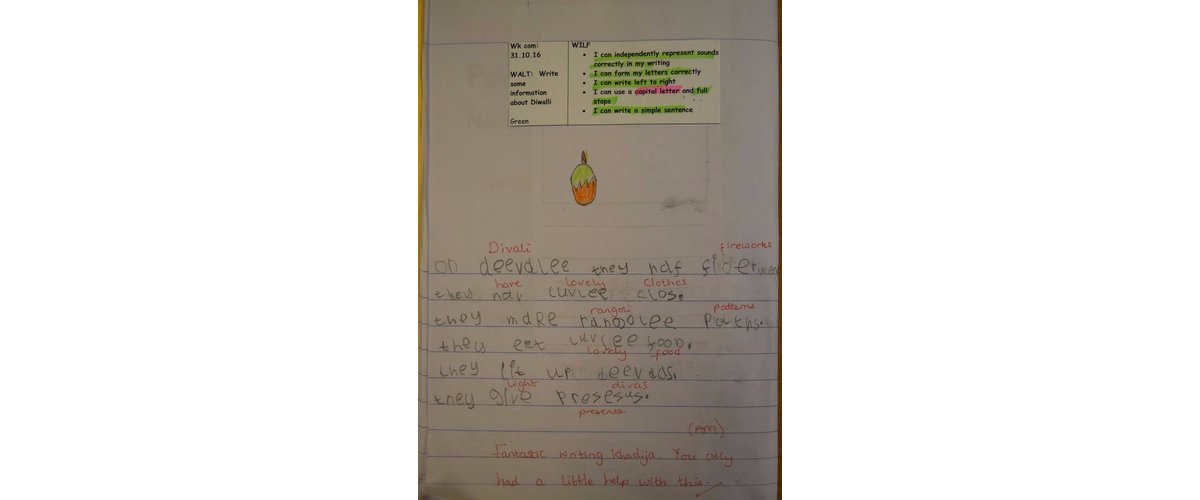 Wk com:
31.10.16
WALT: Write
some
information
about Diwalli
Green
WILF
• I can independently represent sounds
correctly in my writing
• I can form my letters correctly
• I can write left to right
• I can use a capital letter and full
stops
• I can write a simple sentence
Divali fireworks
on deevalee they haf
have lovely clothes
they hav luvlee clos.
rangoli patterns
they make rangolee
they eet luvlee food.
lovely food
they lit up deevas.
light divas
they give
presents
(AM)
Fantastic writing Khadija. You only
had a little help with this.